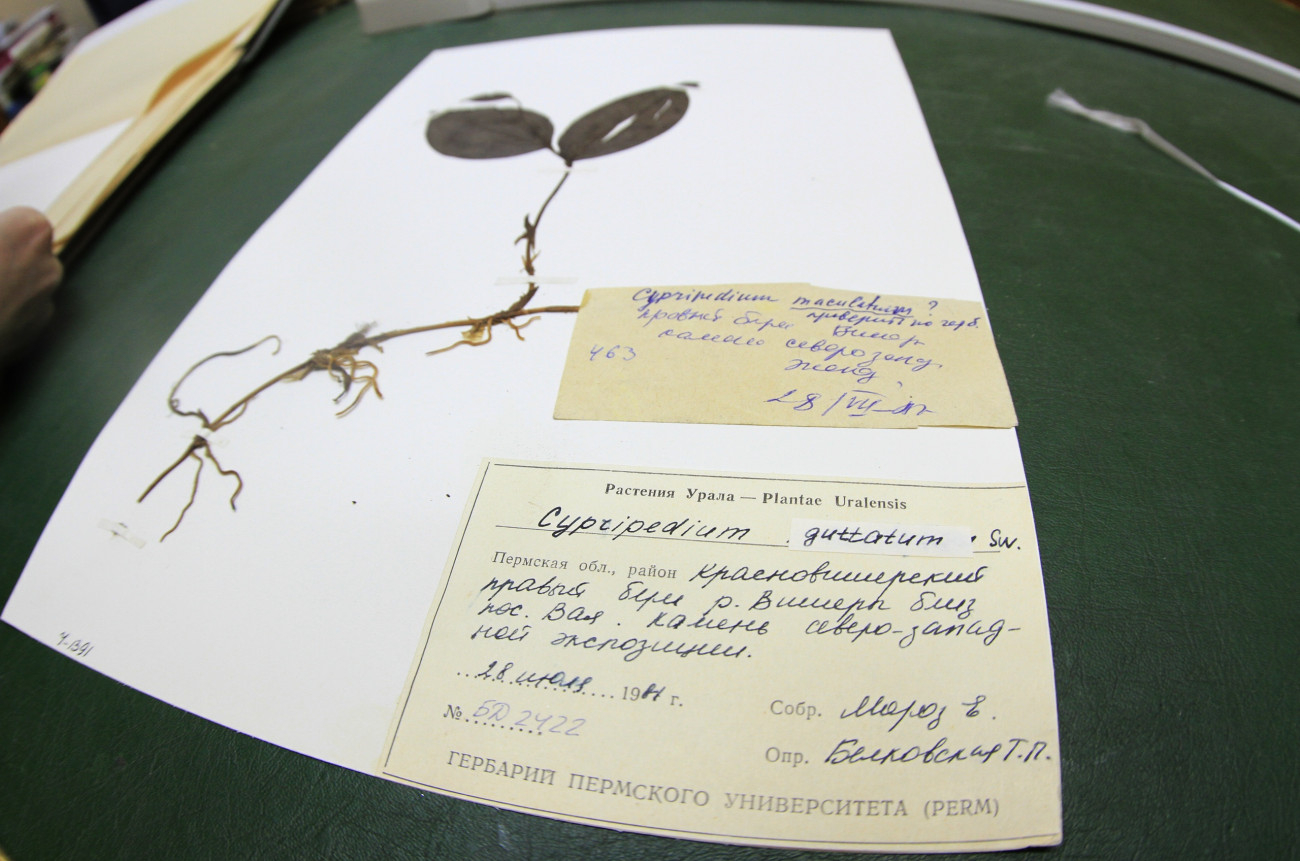 Cypripedium maculatum ?
правый берег Вишер проверить по герб.
камень северо запад.
463
экспоз.
28/VII-
Растения Урала — Plantae Uralensis
Cypripedium guttatum Sw.
Пермская обл., район Красновишерский
правый берег р. Вишеры близ
пос. Вая. Камень северо-запад-
ной экспозиции.
28 июля 1981 г.
Собр. Мороз Е.
№ БД 2422
Опр. Белковская Т.П.
ГЕРБАРИЙ ПЕРМСКОГО УНИВЕРСИТЕТА (PERM)
Ч-1391